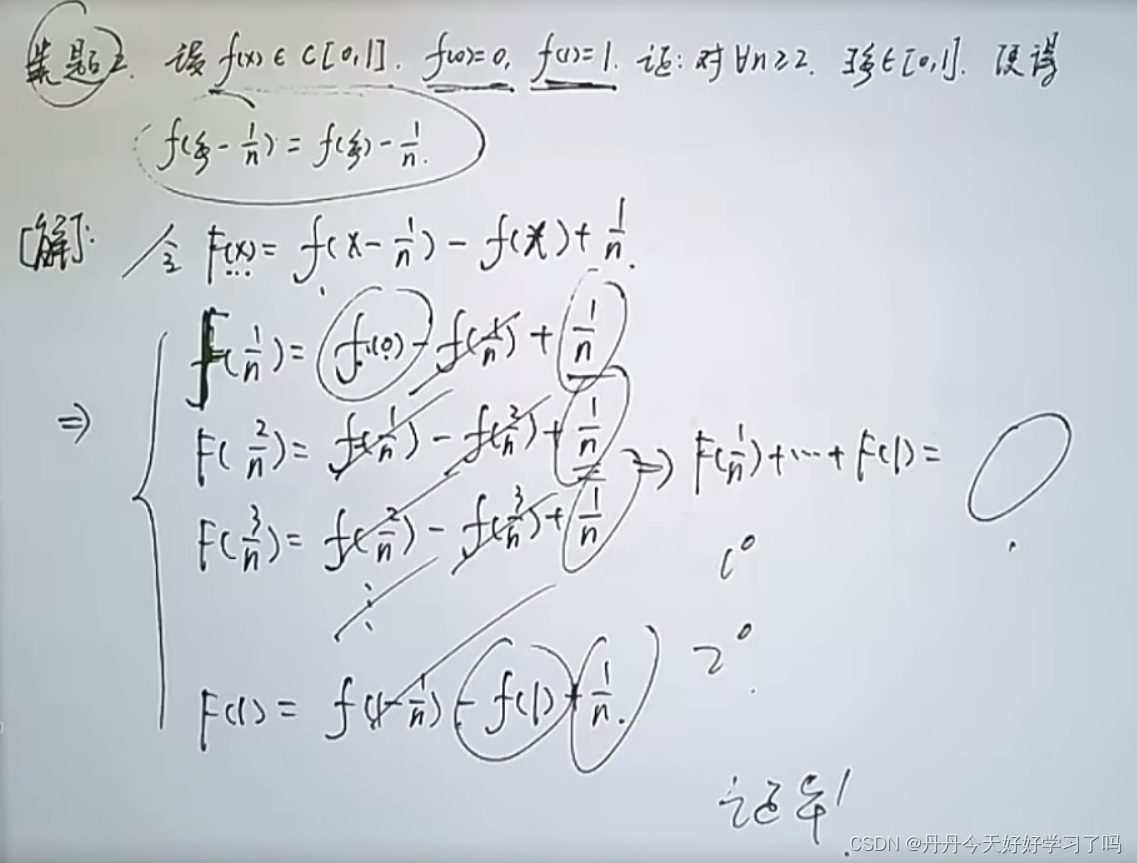 类题2. 设 f(x)∈C[0,1]. f(0)=0, f(1)=1. 证:对∀n≥2. ∃ξ∈[0,1]. 使得
f(ξ-1/n)=f(ξ)-1/n.
[解]: 令 F(x)=f(x-1/n)-f(x)+1/n.
F(1/n)=f(0)-f(1/n)+1/n
⇒ F(2/n)=f(1/n)-f(2/n)+1/n ⇒ F(1/n)+⋯+F(1)=0
F(3/n)=f(2/n)-f(3/n)+1/n
1°
⋮
2°
F(1)=f(1-1/n)-f(1)+1/n.
证毕!
CSDN @丹丹今天好好学习了吗